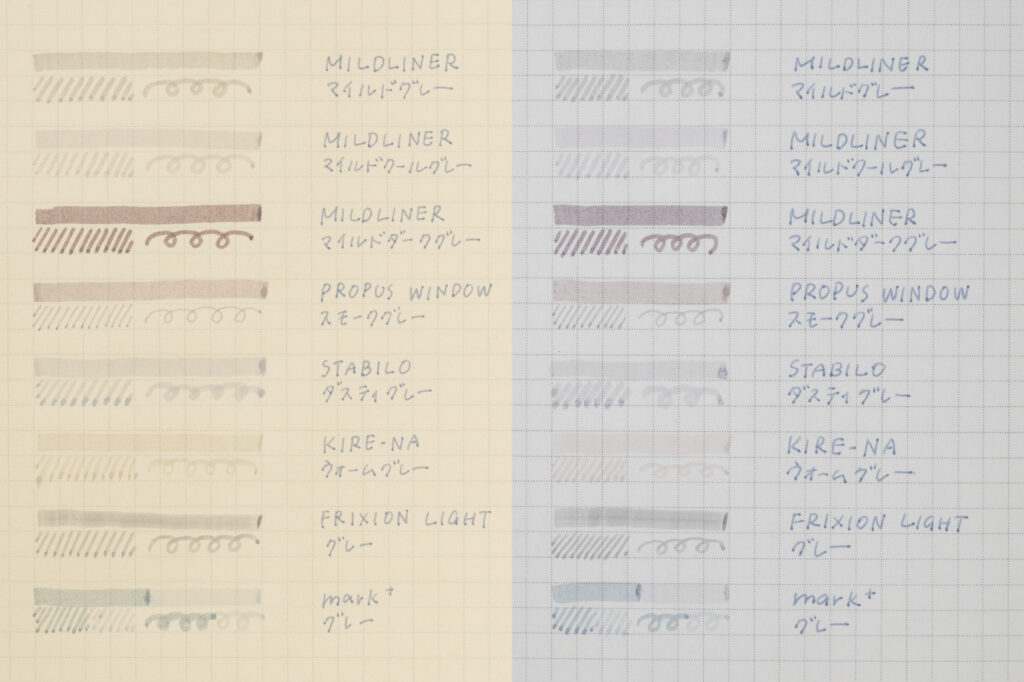 MILDLINER
マイルドグレー
MILDLINER
マイルドクールグレー
MILDLINER
マイルドダークグレー
PROPUS WINDOW
スモークグレー
STABILO
ダスティグレー
KIRE-NA
ウォームグレー
FRIXION LIGHT
グレー
mark+
グレー
MILDLINER
マイルドグレー
MILDLINER
マイルドクールグレー
MILDLINER
マイルドダークグレー
PROPUS WINDOW
スモークグレー
STABILO
ダスティグレー
KIRE-NA
ウォームグレー
FRIXION LIGHT
グレー
mark+
グレー